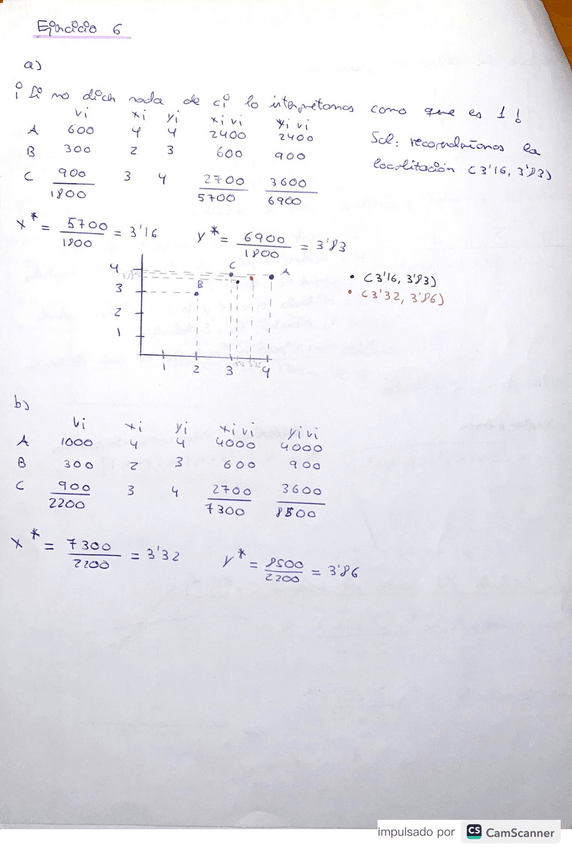 Ejercicio 6
a)
¡ Si no dicen nada de ci lo interpretamos como que es 1 !
vi xi yi xi vi yi vi
A 600 4 4 2400 2400
B 300 2 3 600 900
C 900 3 4 2700 3600
1800 5700 6900
Sol: recomendaríamos la
localitación (3'16, 3'83)
x* = 5700 / 1800 = 3'16 y* = 6900 / 1800 = 3'83
4 3 2 1
C A B
1 2 3 4
• (3'16, 3'83)
• (3'32, 3'86)
b)
vi xi yi xi vi yi vi
A 1000 4 4 4000 4000
B 300 2 3 600 900
C 900 3 4 2700 3600
2200 7300 8500
x* = 7300 / 2200 = 3'32 y* = 8500 / 2200 = 3'86
impulsado por CS CamScanner